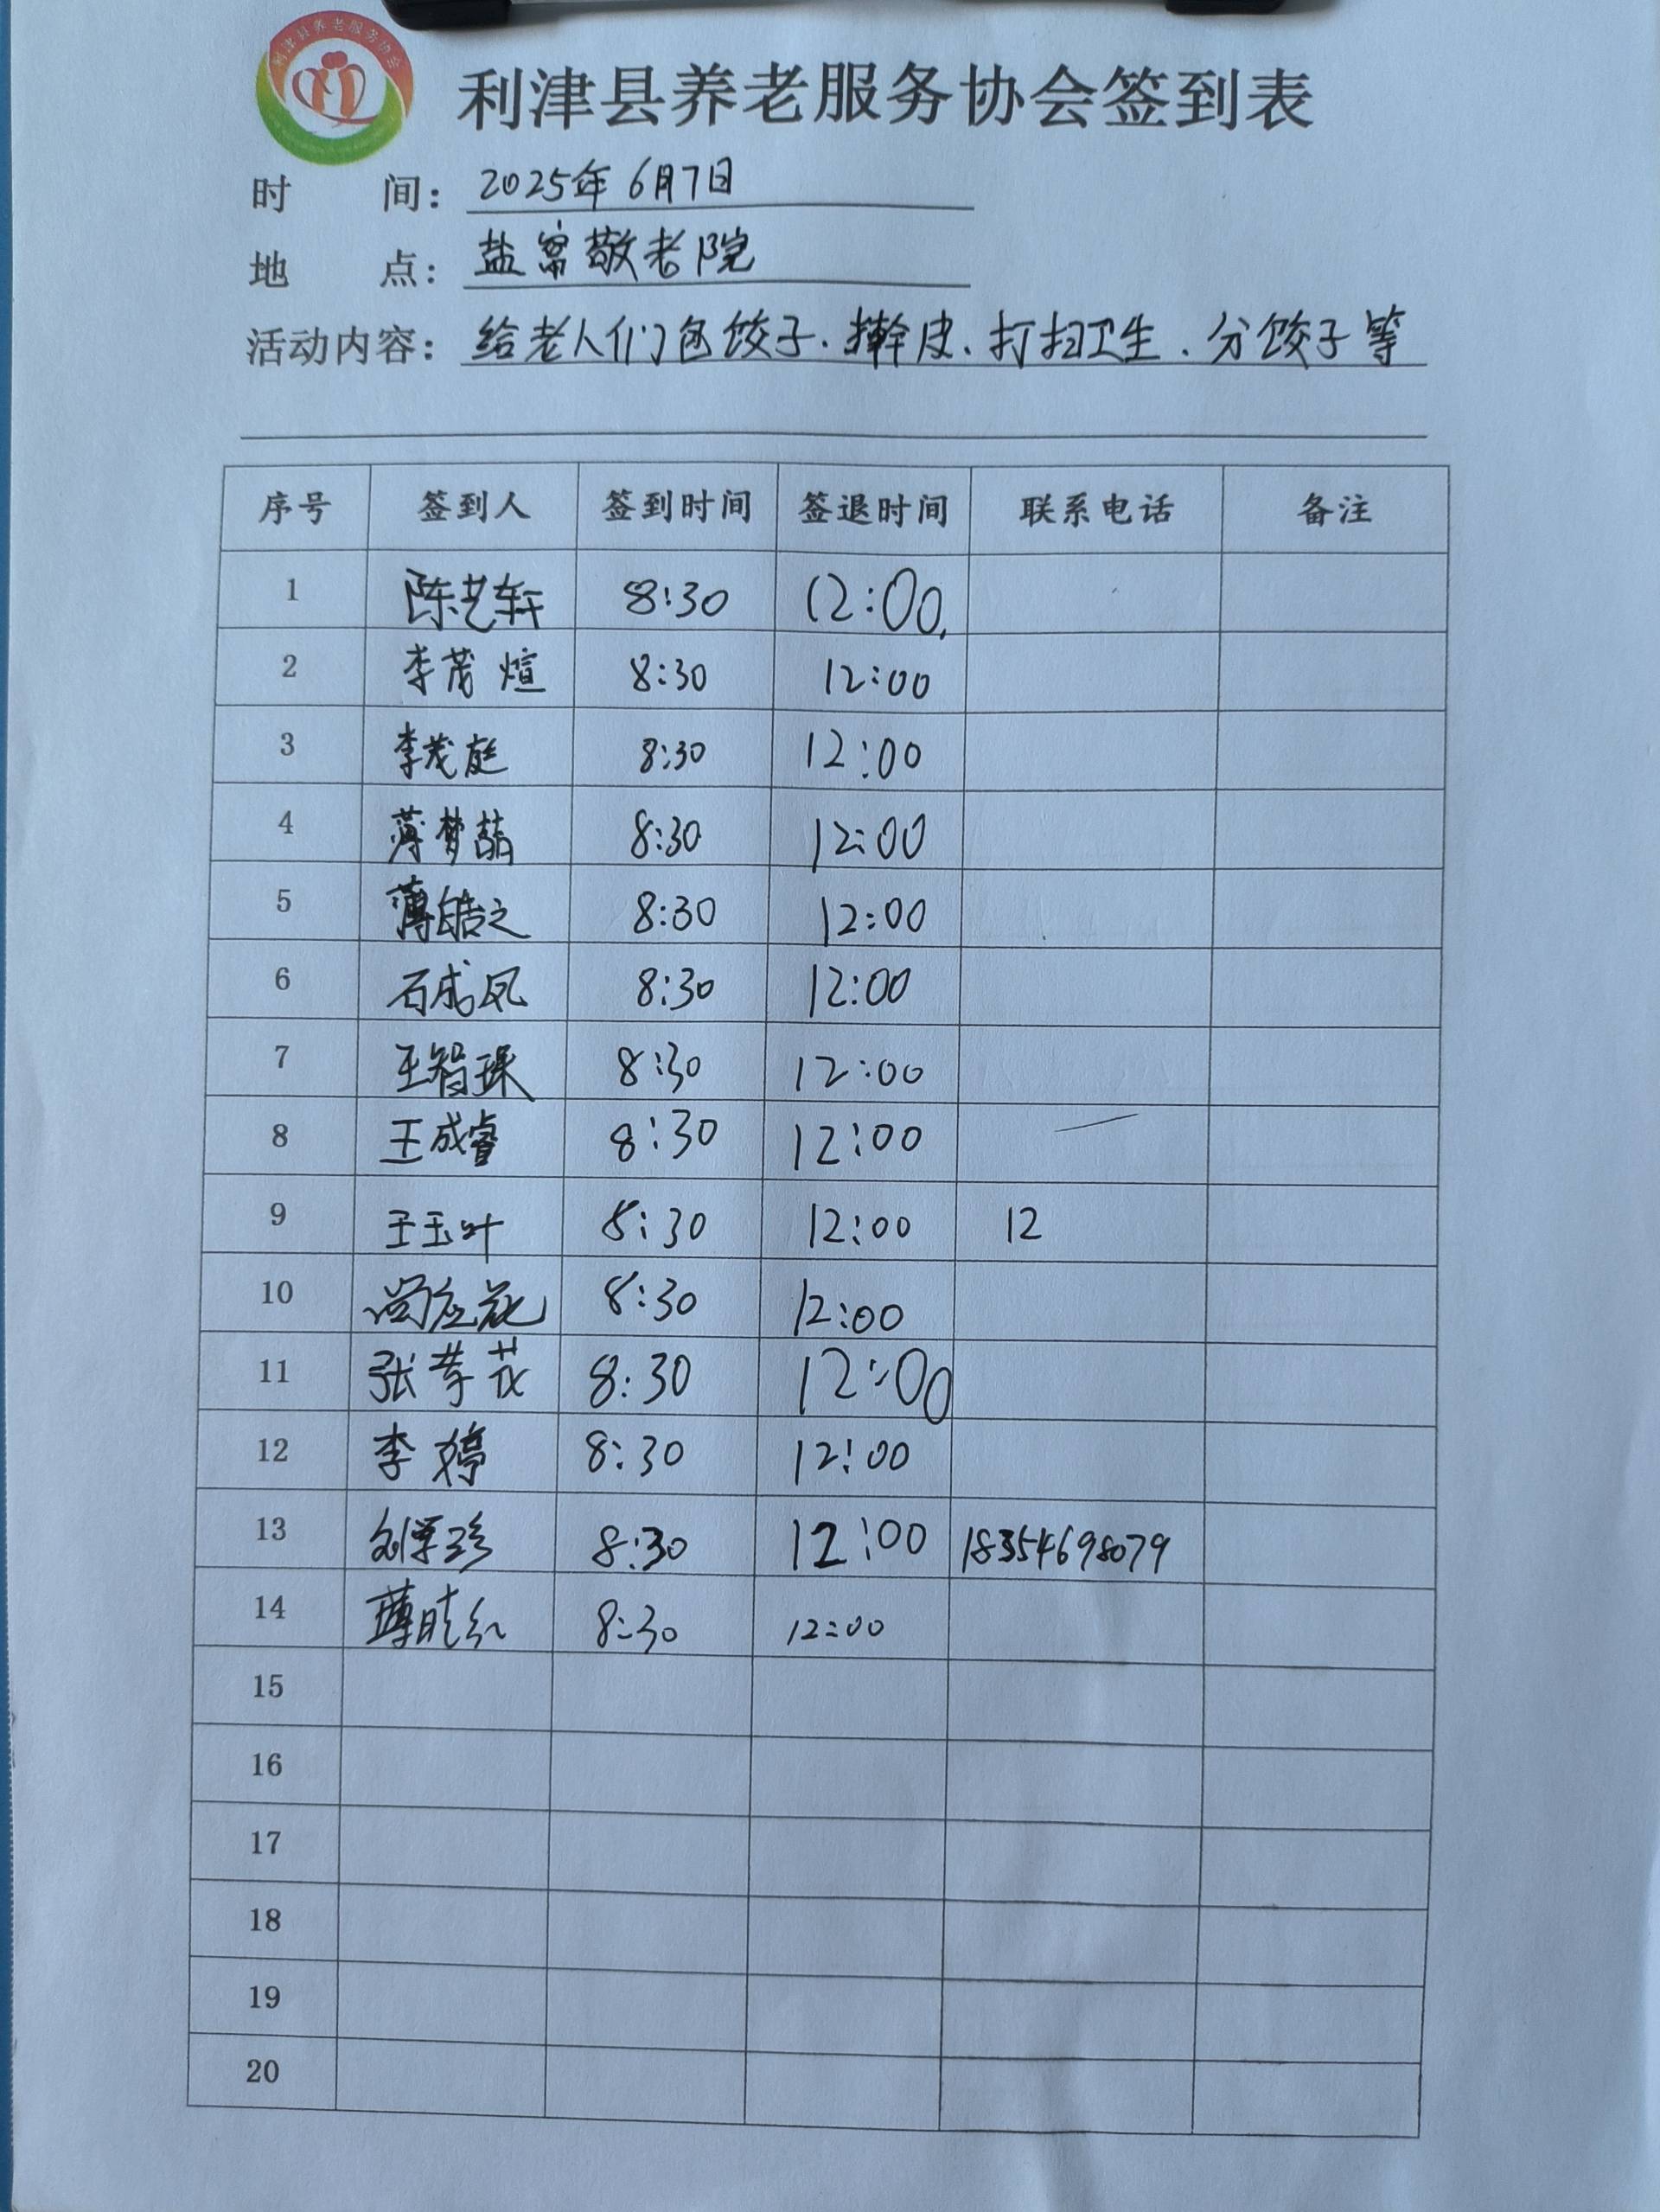 利津县养老服务协会
利津县养老服务协会签到表
时 间：2025年6月7日
地 点：盐窝敬老院
活动内容：给老人们包饺子、擀皮、打扫卫生、分饺子等
序号 签到人 签到时间 签退时间 联系电话 备注
1 陈艺轩 8:30 12:00
2 李茂煊 8:30 12:00
3 李茂庭 8:30 12:00
4 薄梦喆 8:30 12:00
5 薄皓之 8:30 12:00
6 石成凤 8:30 12:00
7 王智琛 8:30 12:00
8 王成睿 8:30 12:00
9 王玉叶 8:30 12:00 12
10 尚应花 8:30 12:00
11 张孝花 8:30 12:00
12 李婷 8:30 12:00
13 刘学珍 8:30 12:00 18354698079
14 薄晓红 8:30 12:00
15
16
17
18
19
20